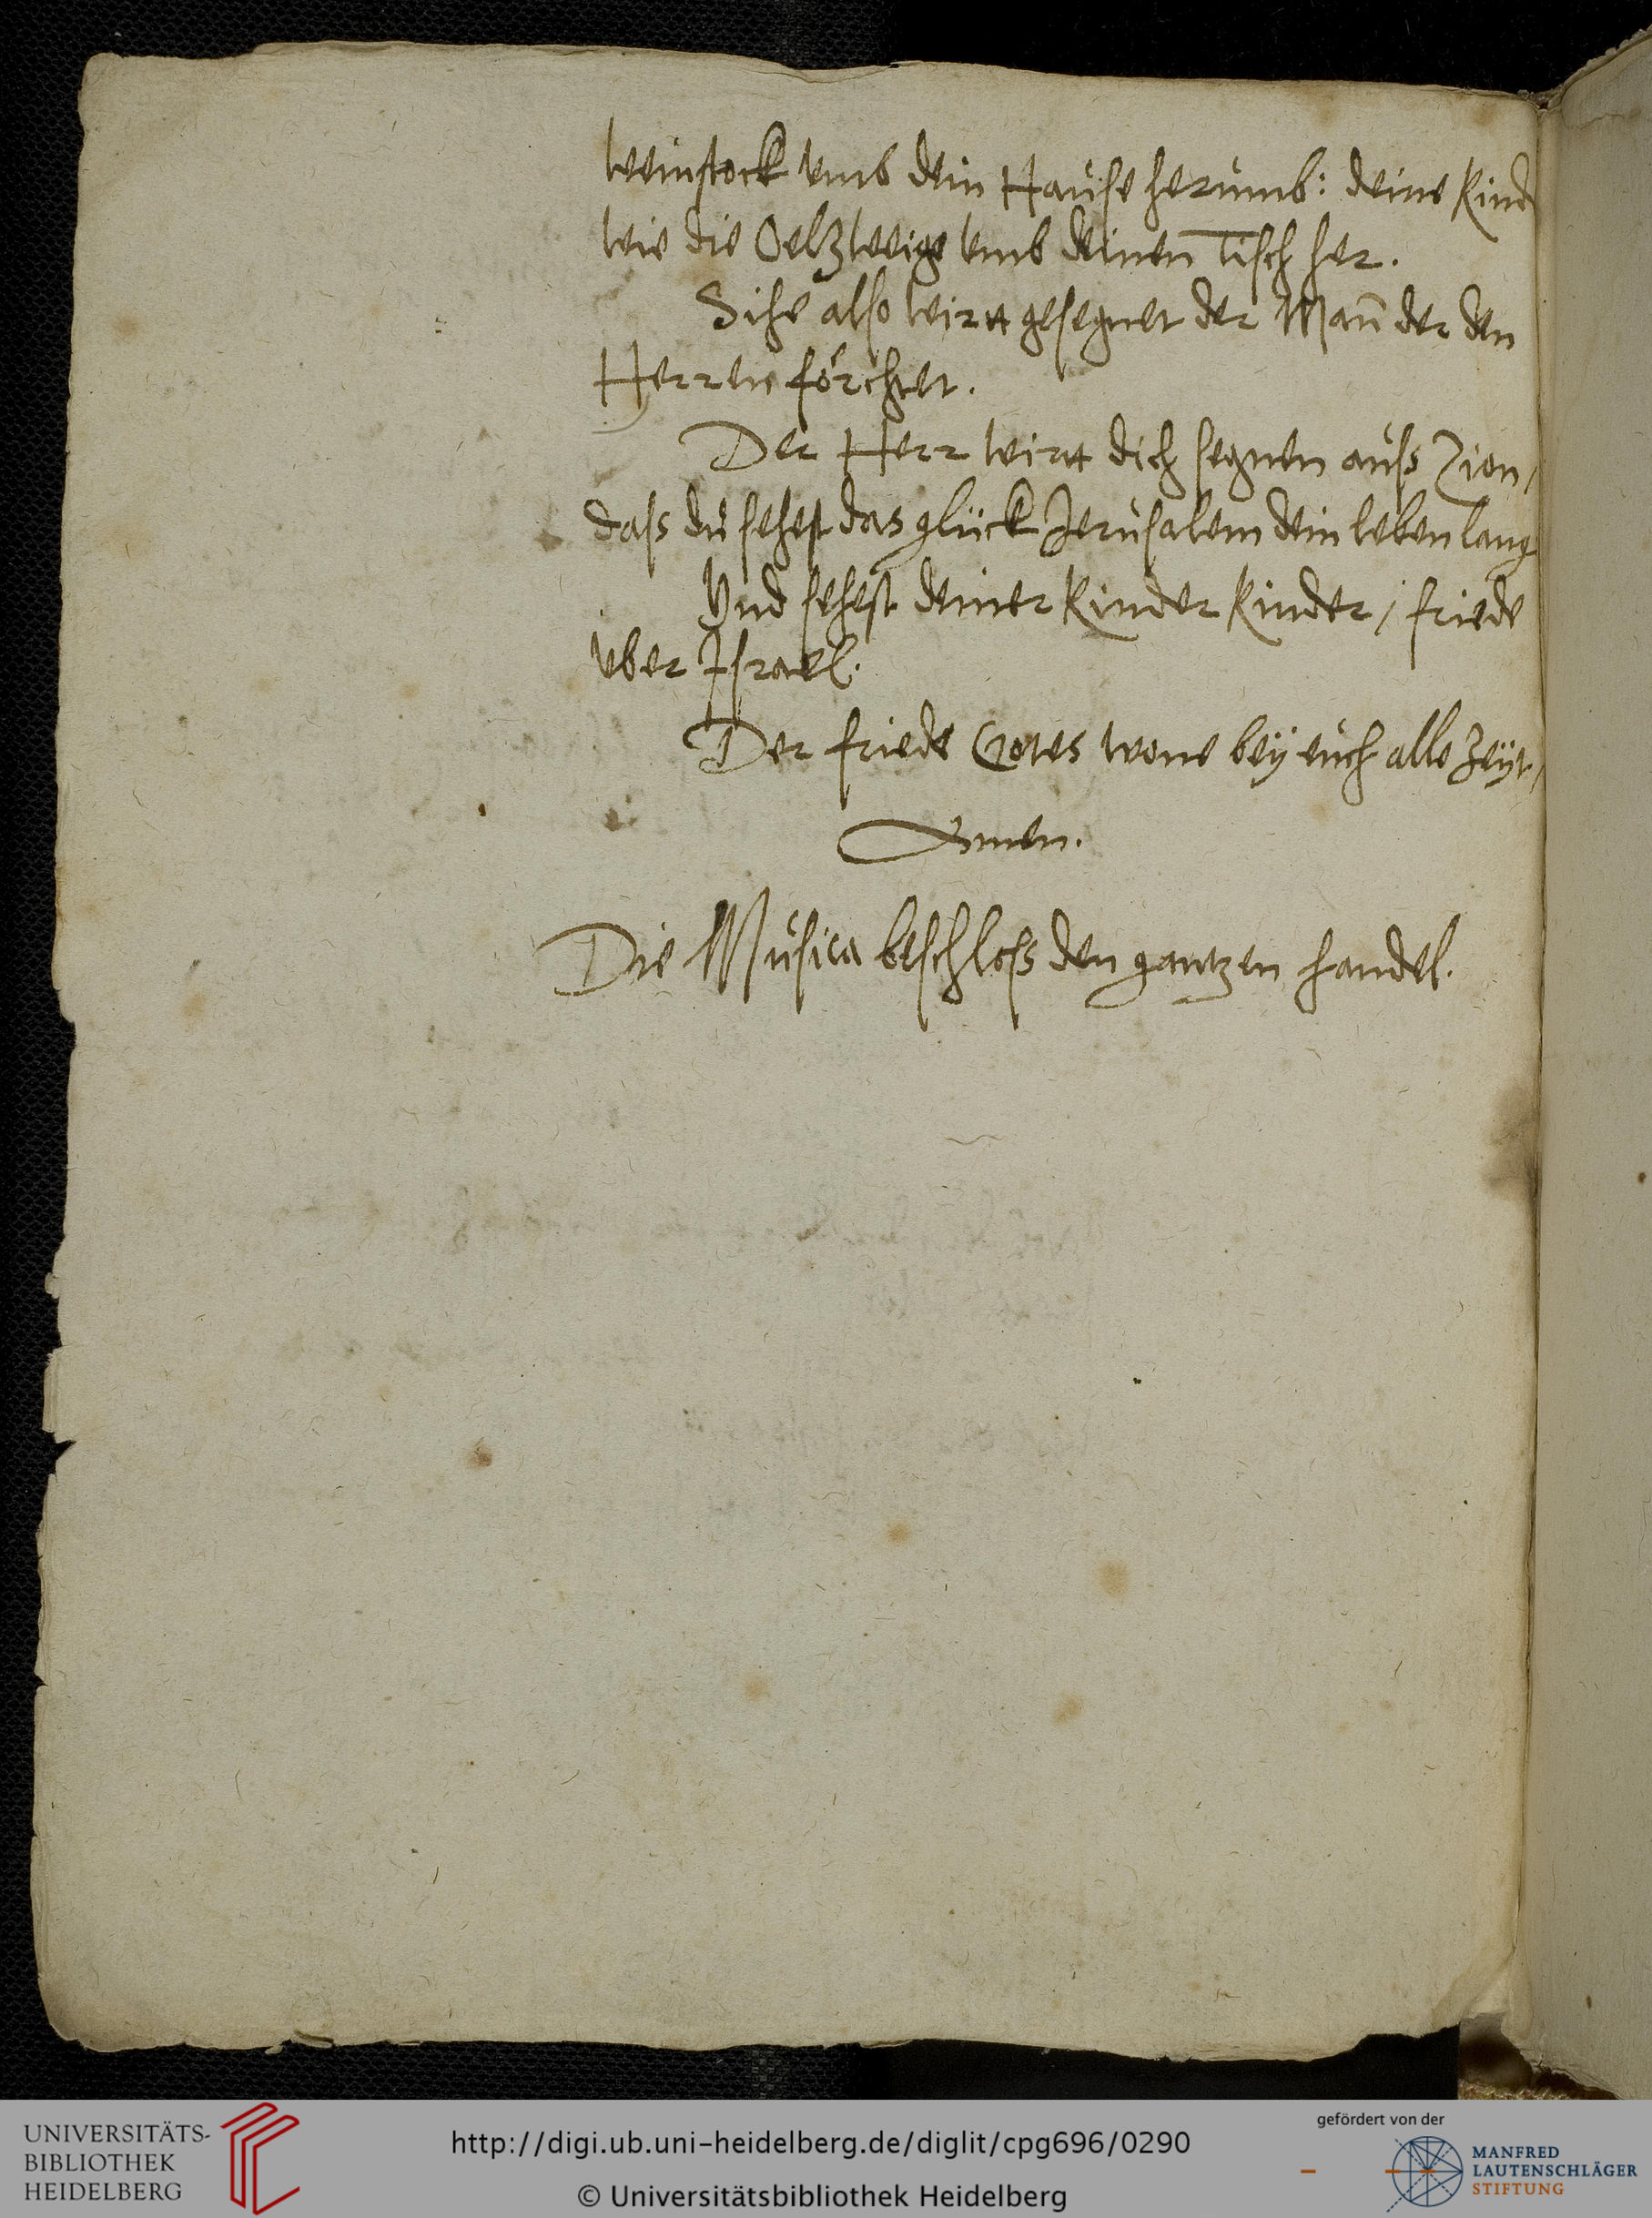 Weinstock vmb dein Hause herumb: deine Kind
wie die Oelzweige vmb deinen Tisch her.
Sihe also wirtt gesegnet der Mañ der den
Herren förchtet.
Der Herr wirtt dich segnen auss Zion,
dass du sehest das glück Jerusalem dein leben lang
Vnd sehest deiner Kinder Kinder / friede
vber Israel.
Der friede Gotes wone bey euch alle Zeyt,
Amen.
Die Musica beschloss den gantzen handel.
UNIVERSITÄTS-
BIBLIOTHEK
HEIDELBERG
http://digi.ub.uni-heidelberg.de/diglit/cpg696/0290
© Universitätsbibliothek Heidelberg
gefördert von der
MANFRED
LAUTENSCHLÄGER
STIFTUNG